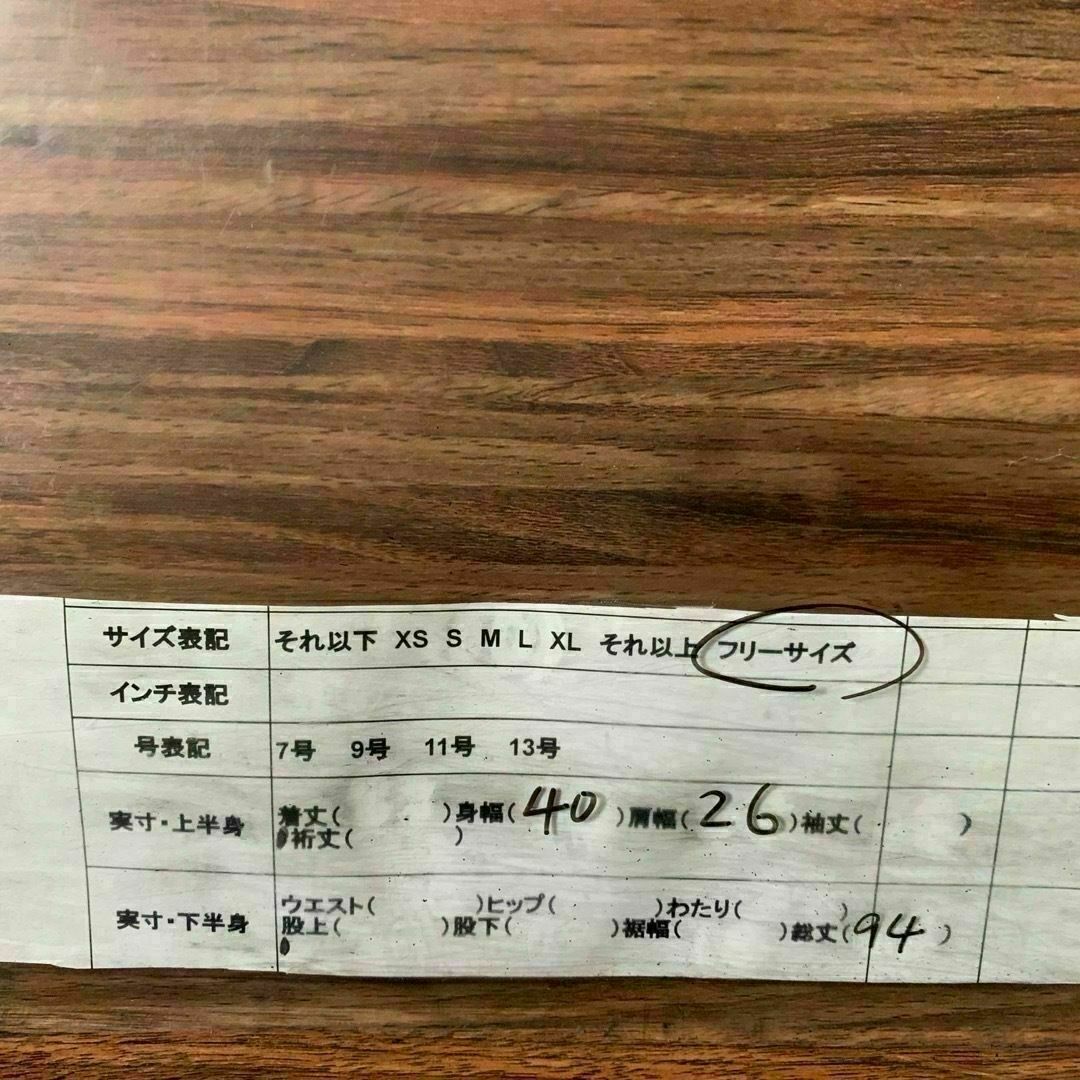 サイズ表記 それ以下 XS S M L XL それ以上 フリーサイズ
インチ表記
号表記 7号 9号 11号 13号
実寸・上半身 着丈( )身幅( 40 )肩幅( 26 )袖丈( )
裄丈( )
実寸・下半身 ウエスト( )ヒップ( )わたり( )
股上( )股下( )裾幅( )総丈( 94 )